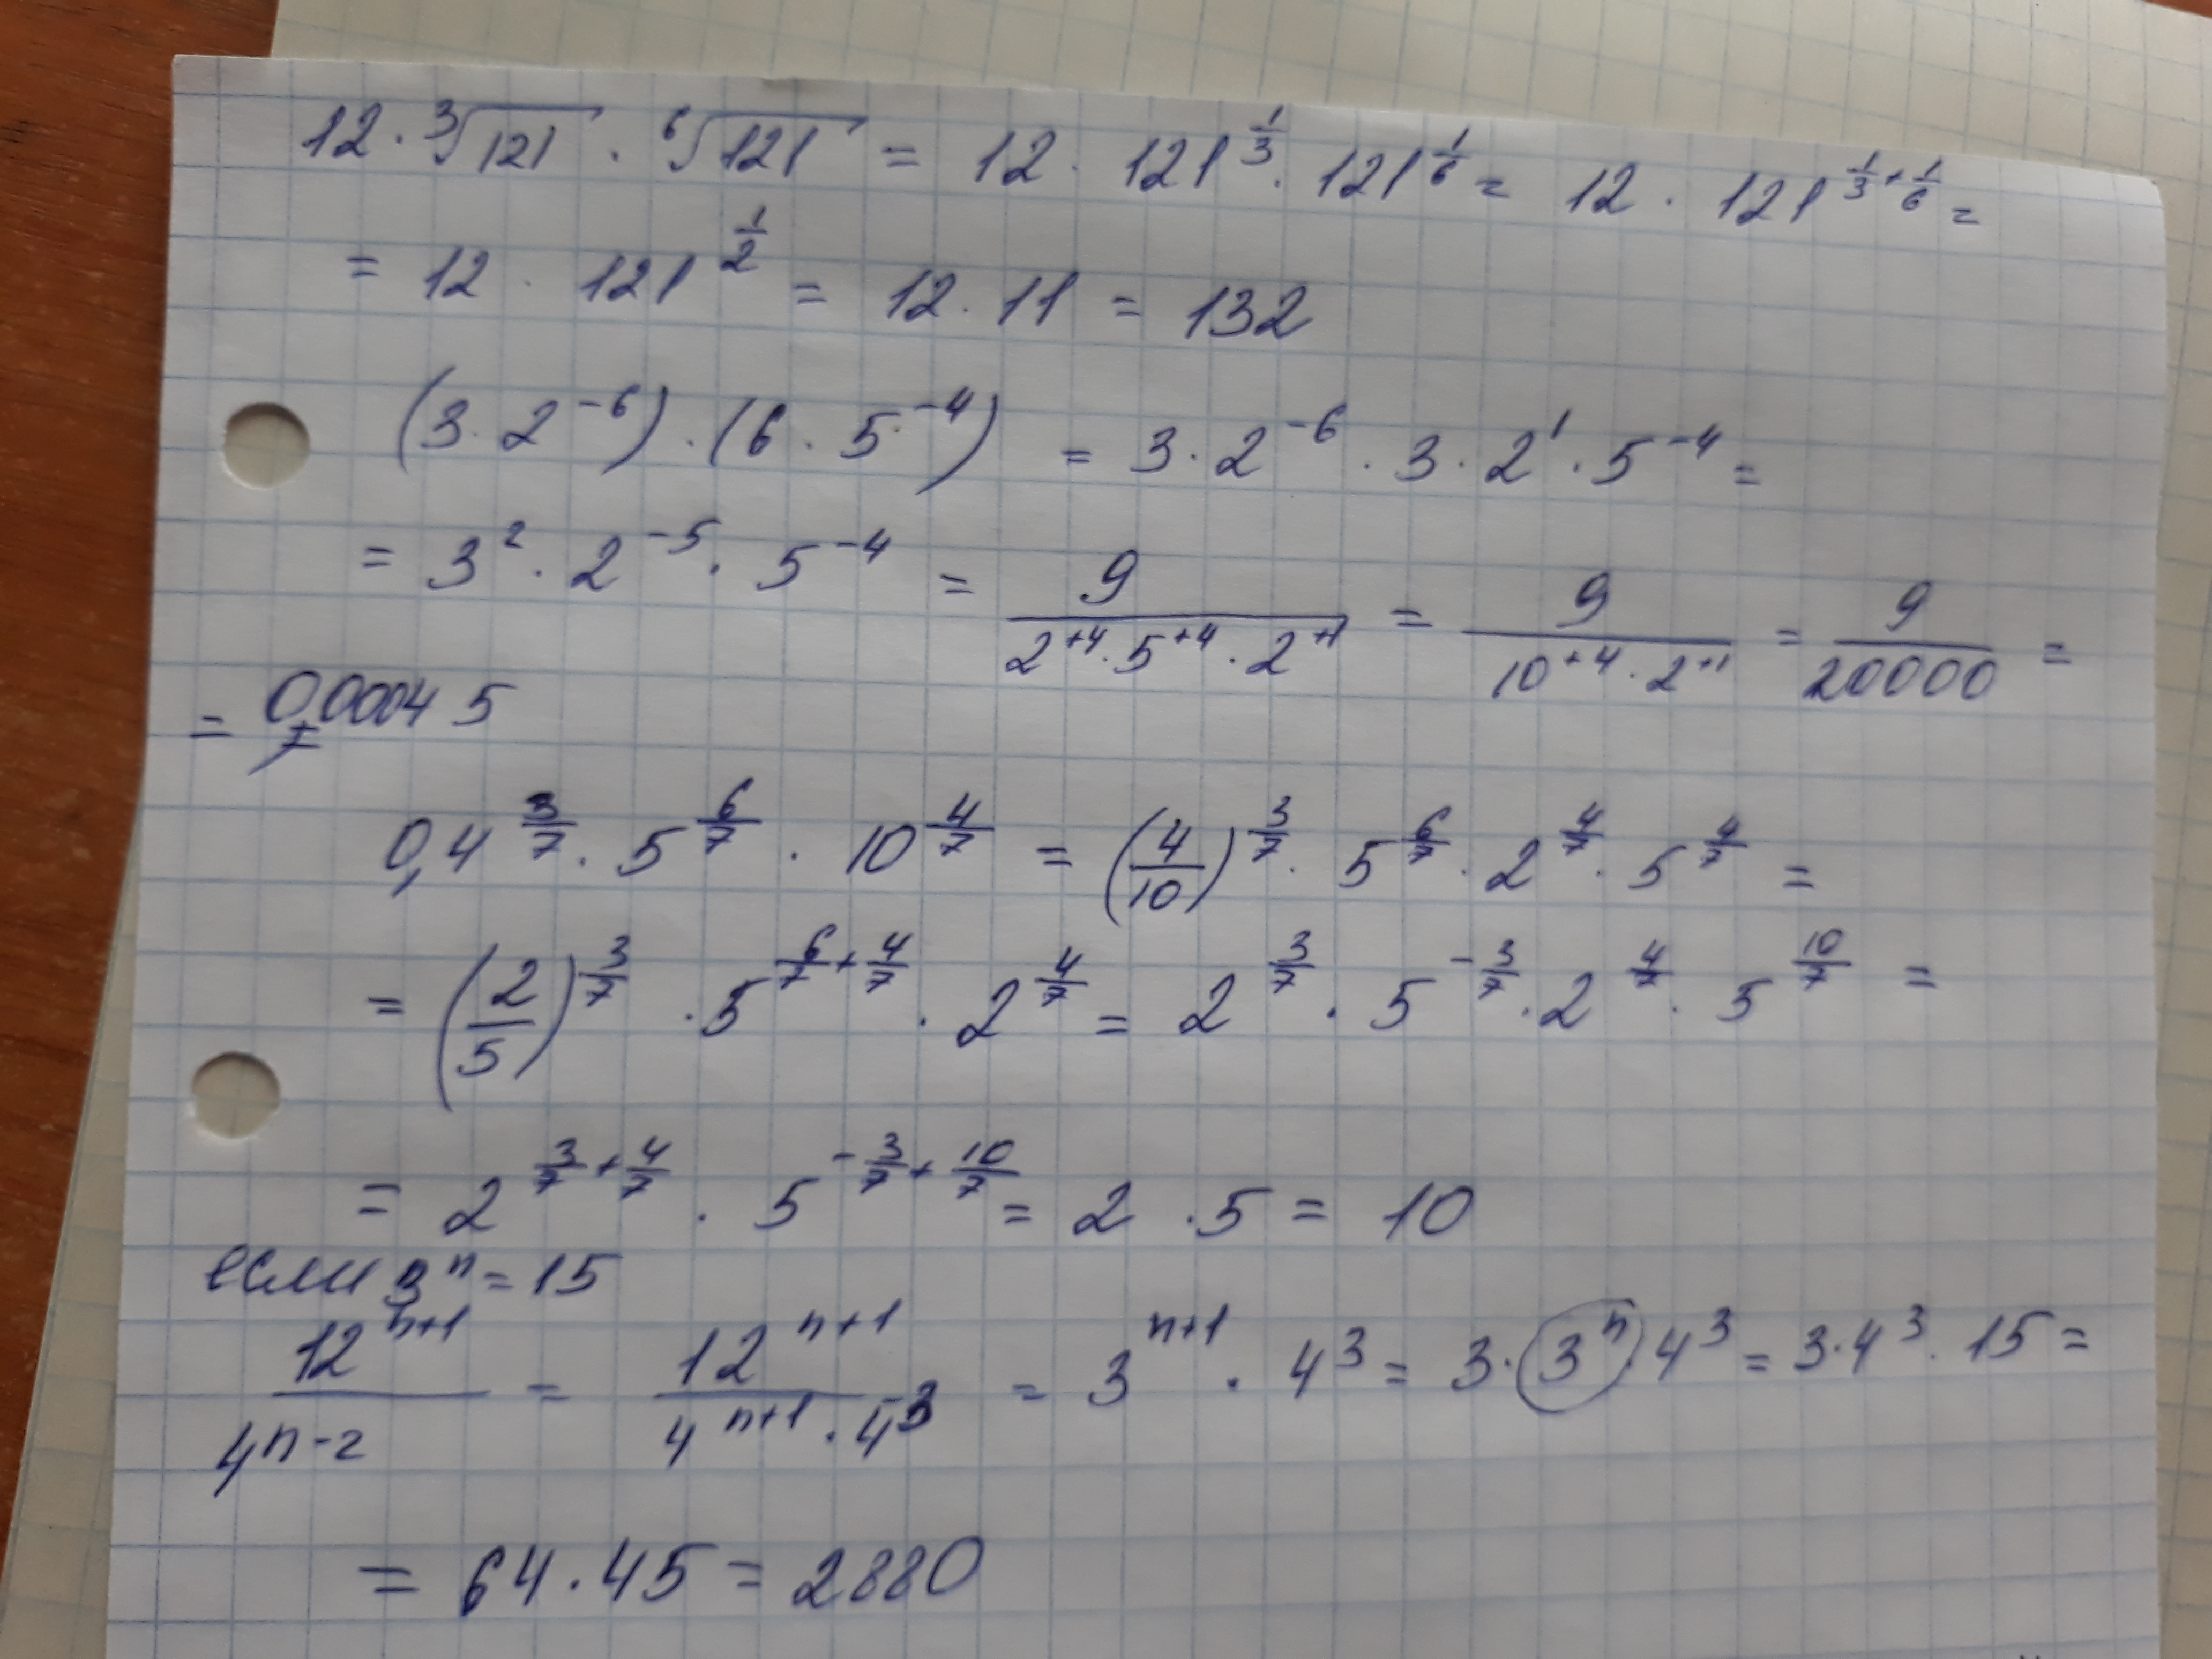 12 · ∛121 · ⁶√121 = 12 · 121^(1/3) · 121^(1/6) = 12 · 121^(1/3 + 1/6) =
= 12 · 121^(1/2) = 12 · 11 = 132
(3 · 2^(-6)) · (6 · 5^(-4)) = 3 · 2^(-6) · 3 · 2^1 · 5^(-4) =
= 3^2 · 2^(-5) · 5^(-4) = 9/(2^(+4) · 5^(+4) · 2^(+1)) = 9/(10^(+4) · 2^(+1)) = 9/20000 =
= 0,00045
0,4^(3/7) · 5^(6/7) · 10^(4/7) = (4/10)^(3/7) · 5^(6/7) · 2^(4/7) · 5^(4/7) =
= (2/5)^(3/7) · 5^(6/7 + 4/7) · 2^(4/7) = 2^(3/7) · 5^(-3/7) · 2^(4/7) · 5^(10/7) =
= 2^(3/7 + 4/7) · 5^(-3/7 + 10/7) = 2 · 5 = 10
если 3^n = 15
12^(n+1)/4^(n-2) = 12^(n+1)/(4^(n+1) · 4^(-3)) = 3^(n+1) · 4^3 = 3 · 3^n · 4^3 = 3 · 4^3 · 15 =
= 64 · 45 = 2880